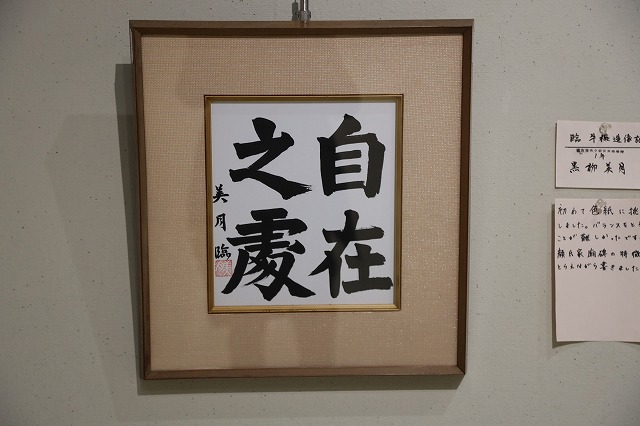 自在
之處
美月臨
臨 牛橛造像
1年
黒柳 美月
初めて色紙に挑
しました。バランスをと
ことが難しかったです
顔氏家廟碑の特徴
とらえながら書きました